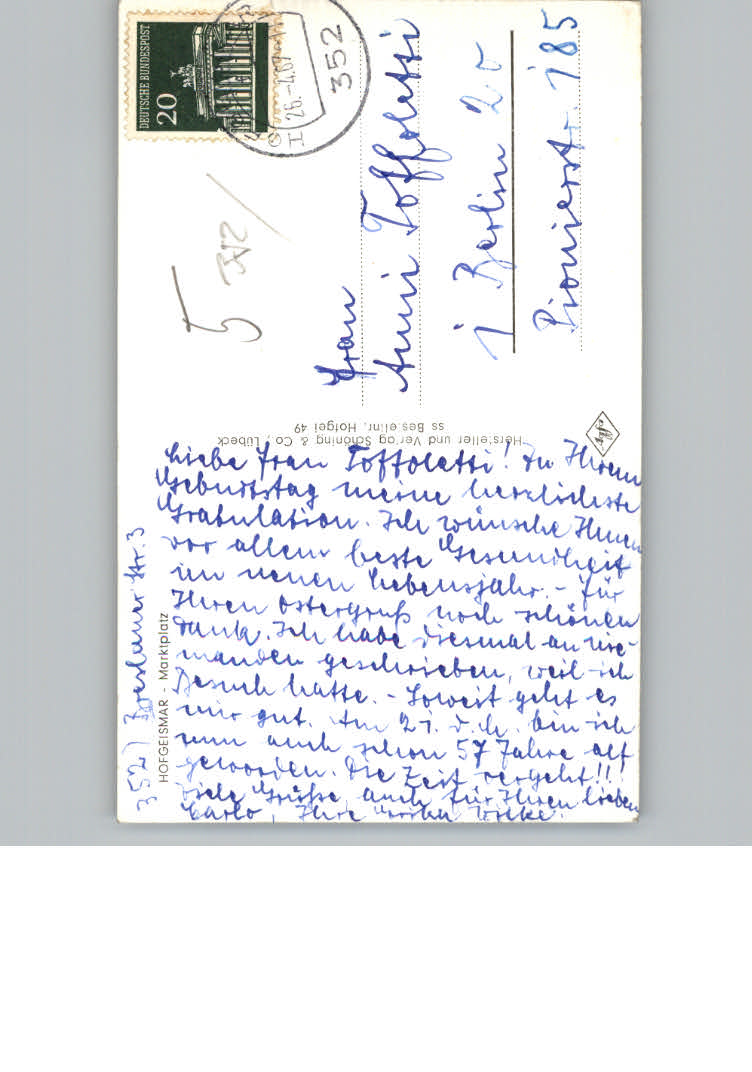 Liebe Frau Toffoletti! Zu Ihrem
Geburtstag meine herzlichste
Gratulation. Ich wünsche Ihnen
vor allem beste Gesundheit
im neuen Lebensjahr. – Für
Ihren Ostergruß noch schönen
Dank. Ich habe diesmal an nie-
manden geschrieben, weil ich
Besuch hatte. – Soweit geht es
mir gut. Am 21. d. M. bin ich
nun auch schon 57 Jahre alt
geworden. Die Zeit vergeht!!!
Viele Grüße, auch für Ihren lieben
Carlo, Ihre
3521 Breslauer Str. 3
HOFGEISMAR - Marktplatz
Hersteller und Verlag Schöning & Co., Lübeck
ss Bestellnr. Hofgei 49
Agfa
DEUTSCHE BUNDESPOST
20
26.-4.67
352
5
Frau
Anni Toffoletti
1 Berlin 20
Pionierstr. 185